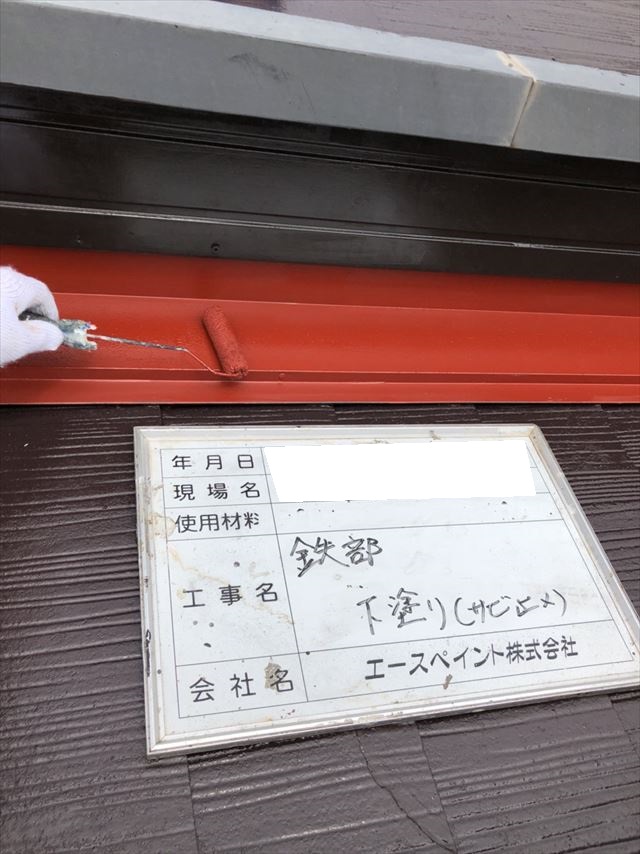 年月日
現場名
使用材料
工事名 鉄部
下塗り(サビ止メ)
会社名 エースペイント株式会社